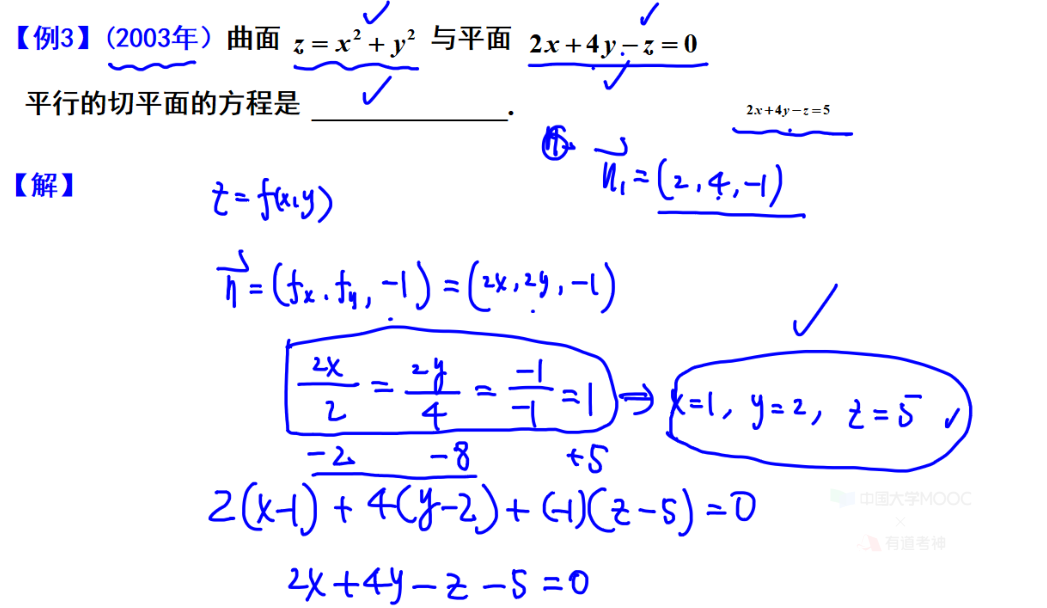 【例3】(2003年) 曲面 z = x² + y² 与平面 2x + 4y − z = 0
平行的切平面的方程是 ______________.
2x+4y−z=5
n₁ = (2, 4, −1)
【解】
z = f(x, y)
n = (fx, fy, −1) = (2x, 2y, −1)
2x/2 = 2y/4 = −1/−1 = 1 ⇒ x=1, y=2, z=5
−2 −8 +5
2(x−1) + 4(y−2) + (−1)(z−5) = 0
中国大学MOOC
×
有道考神
2x + 4y − z − 5 = 0